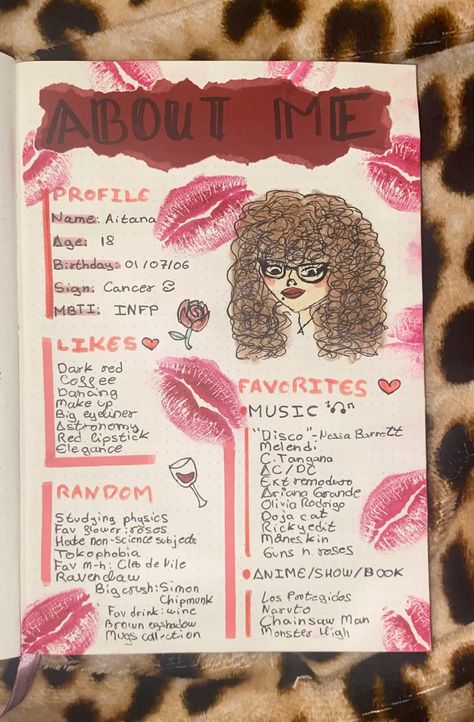 ABOUT ME
PROFILE
Name: Aitana
Age: 18
Birthday: 01/07/06
Sign: Cancer ♋
MBTI: INFP
LIKES
Dark red
Coffee
Dancing
Make up
Big eyeliner
Astronomy
Red lipstick
Elegance
RANDOM
Studying physics
Fav flower: roses
Hate non-science subjects
Tokophobia
Fav m-h: Cleo de Nile
Ravenclaw
Big crush: Simon
Chipmunk
Fav drink: wine
Brown eyeshadow
Mugs collection
FAVORITES
MUSIC
"Disco" - Nessa Barrett
Melendi
C. Tangana
AC/DC
Extremoduro
Ariana Grande
Olivia Rodrigo
Doja cat
Rickyedit
Måneskin
Guns n roses
ANIME/SHOW/BOOK
Los Protegidos
Naruto
Chainsaw Man
Monster High